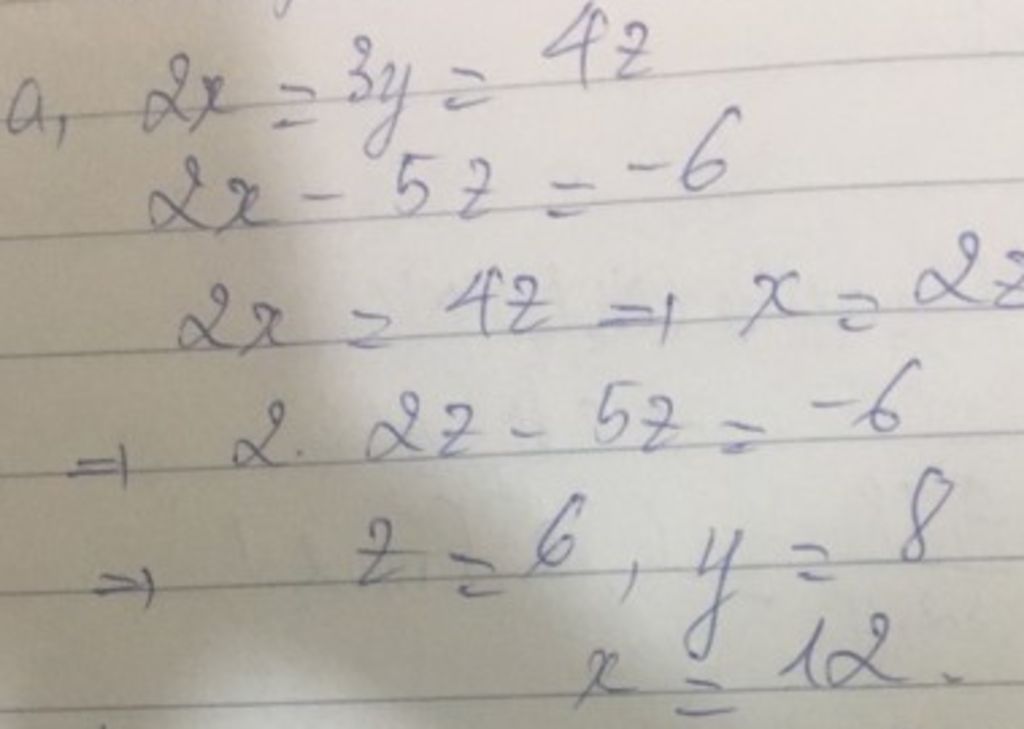 a, 2x = 3y = 4z
2x - 5z = -6
2x = 4z => x = 2z
=> 2. 2z - 5z = -6
=> z = 6, y = 8
x = 12.